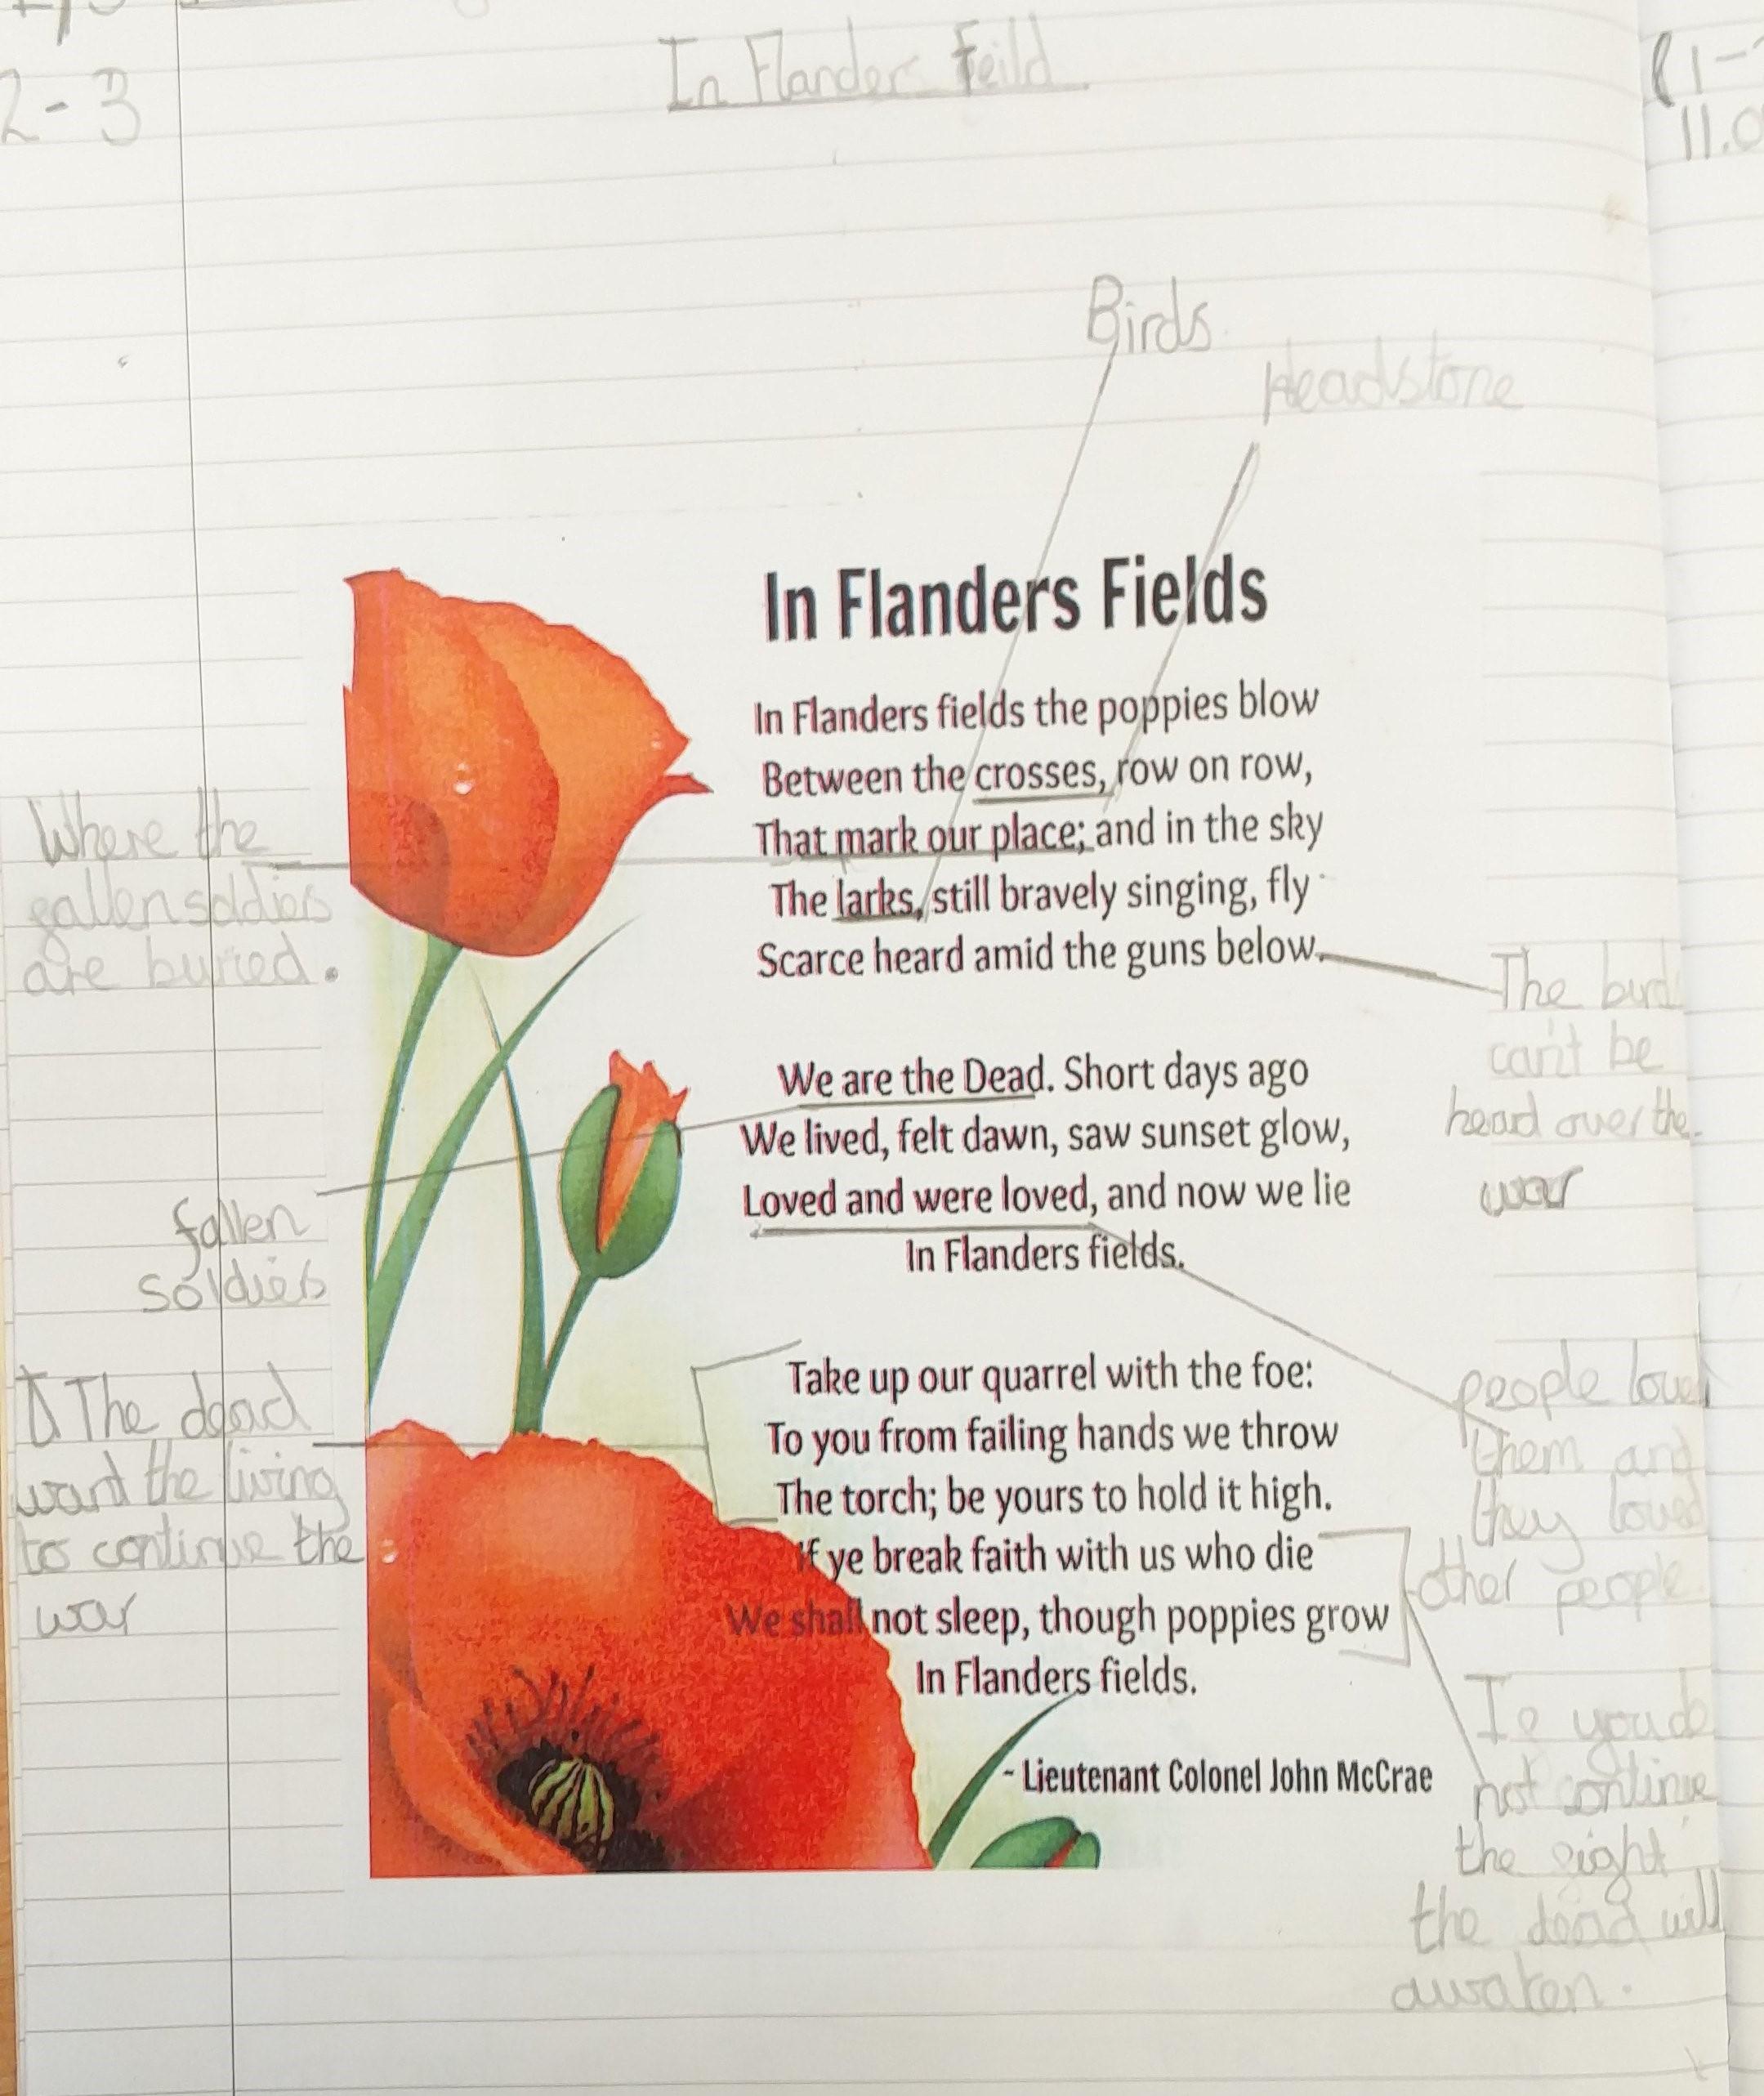 2-3
In Flanders Feild
11.0
Birds
Headstone
In Flanders Fields
In Flanders fields the poppies blow
Between the crosses, row on row,
That mark our place; and in the sky
The larks, still bravely singing, fly
Scarce heard amid the guns below.
Where the
fallen soldiers
are buried.
The bird
can't be
heard over the
war
We are the Dead. Short days ago
We lived, felt dawn, saw sunset glow,
Loved and were loved, and now we lie
In Flanders fields.
fallen
soldiers
people loved
them and
they loved
other people
Take up our quarrel with the foe:
To you from failing hands we throw
The torch; be yours to hold it high.
If ye break faith with us who die
We shall not sleep, though poppies grow
In Flanders fields.
The dead
want the living
to continue the
war
If you do
not continue
the fight
the dead will
awaken.
~ Lieutenant Colonel John McCrae